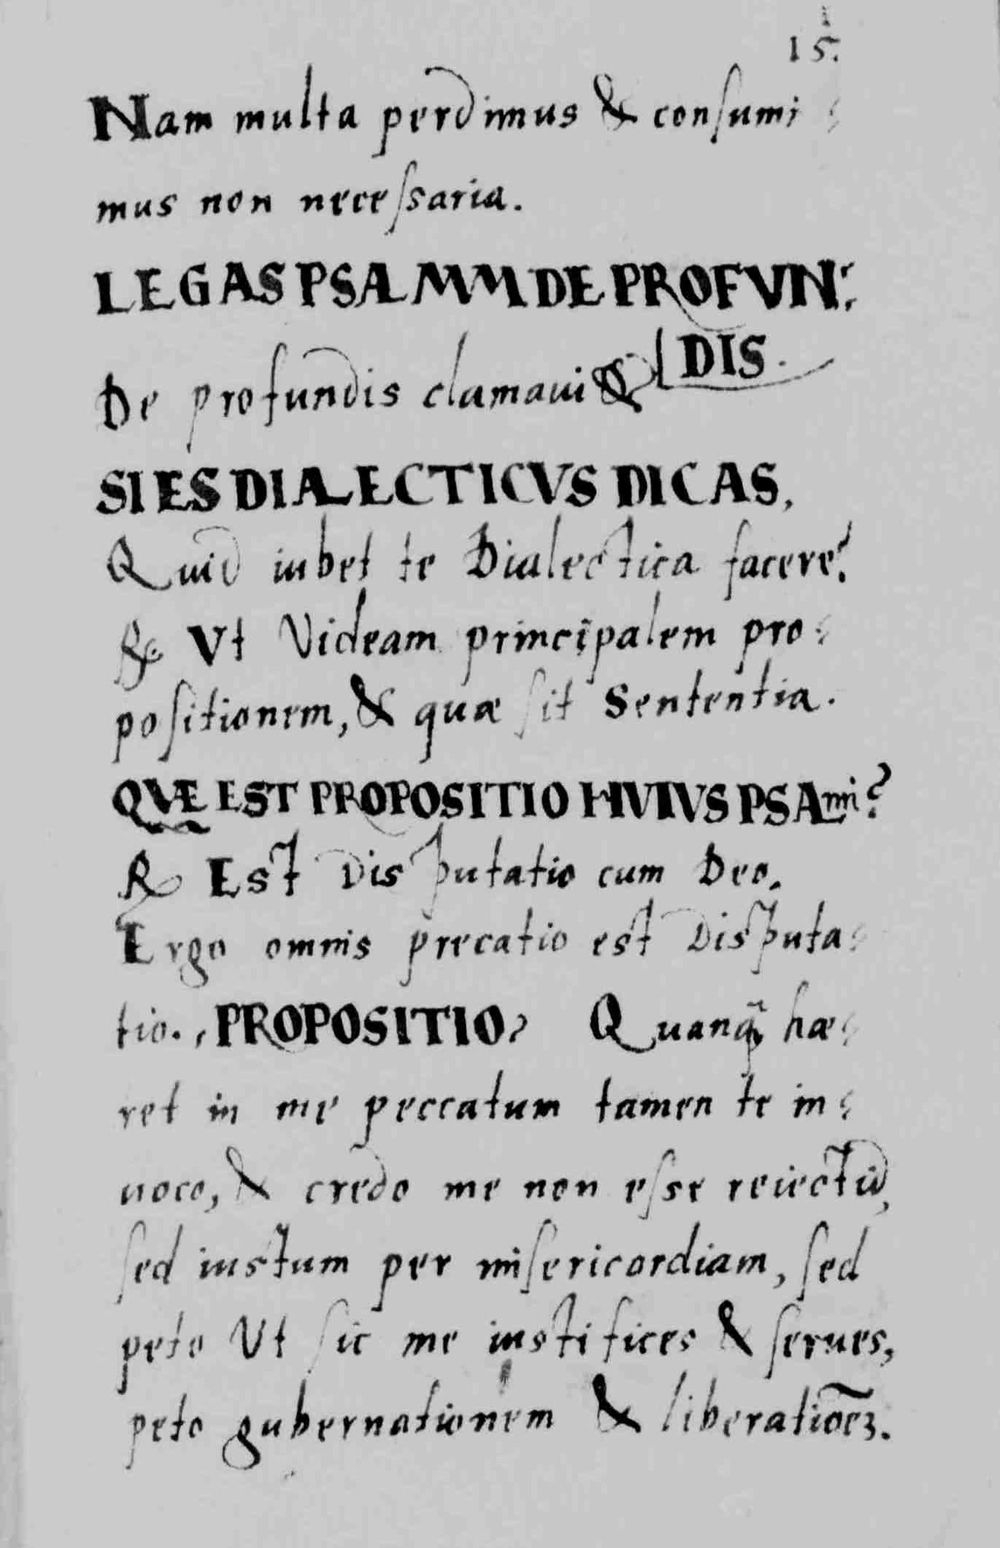 15.
Nam multa perdimus & consumi-
mus non necessaria.
LEGAS PSALMVM DE PROFVN-
DIS.
De profundis clamaui &
SI ES DIALECTICVS DICAS,
Quid iubet te Dialectica facere?
℞. Vt Videam principalem pro-
positionem, & quæ sit Sententia.
QVÆ EST PROPOSITIO HVIVS PSALmi?
℞ Est Disputatio cum Deo.
Ergo omnis precatio est Disputa-
tio. PROPOSITIO, Quanq̃ hæ-
ret in me peccatum tamen te in-
uoco, & credo me non esse reiectũ,
sed iustum per misericordiam, sed
peto Vt sic me iustifices & serues,
peto gubernationem & liberatiōeȝ.